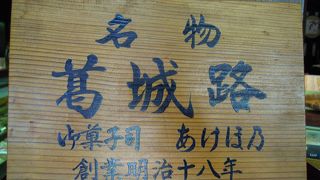 名物
葛城路
御菓子司 あけぼ乃
創業明治十八年